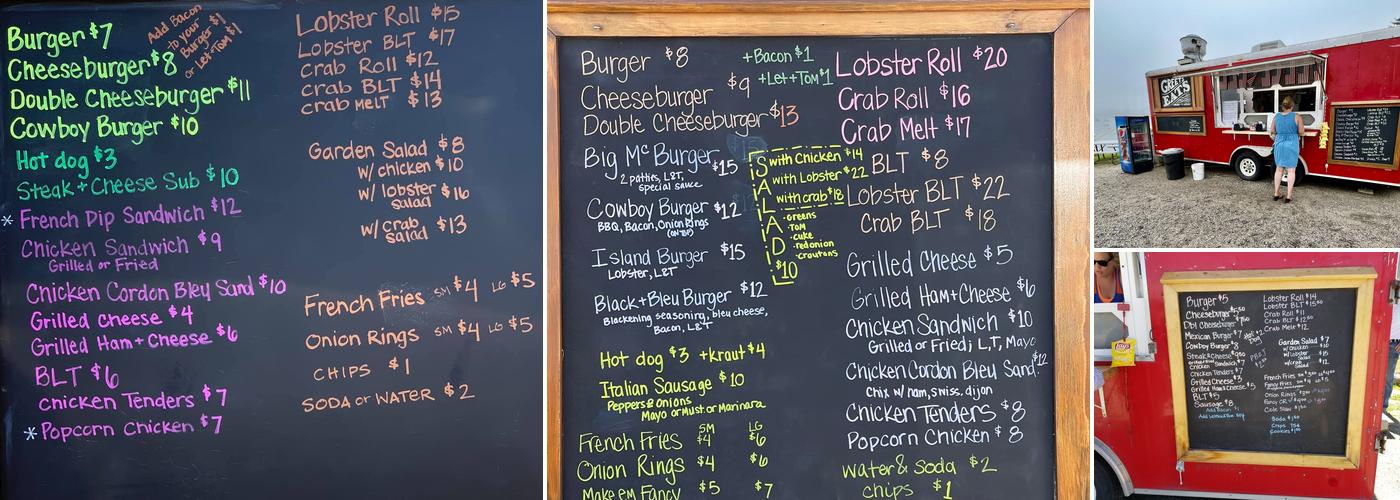 Burger $7
Cheeseburger $8
Double Cheeseburger $11
Cowboy Burger $10
Hot dog $3
Steak + Cheese Sub $10
* French Dip Sandwich $12
Chicken Sandwich $9
Grilled or Fried
Chicken Cordon Bleu Sand $10
Grilled cheese $4
Grilled Ham + Cheese $6
BLT $6
Chicken Tenders $7
* Popcorn Chicken $7
Add Bacon
to your
Burger $1
or Let + Tom $1
Lobster Roll $15
Lobster BLT $17
Crab Roll $12
Crab BLT $14
Crab Melt $13
Garden Salad $8
w/ chicken $10
w/ lobster $16
salad
w/ crab $13
salad
French Fries SM $4 LG $5
Onion Rings SM $4 LG $5
CHIPS $1
SODA or WATER $2
Burger $8
+Bacon $1
+Let+Tom $1
Cheeseburger $9
Double Cheeseburger $13
Big Mc Burger $15
2 patties, L&T,
special sauce
Cowboy Burger $12
BBQ, Bacon, Onion Rings
(on top)
Island Burger $15
Lobster, L&T
Black+Bleu Burger $12
Blackening seasoning, bleu cheese,
Bacon, L&T
Hot dog $3 +kraut $4
Italian Sausage $10
Peppers & onions
Mayo or Must or Marinara
SM LG
French Fries $4 $6
Onion Rings $4 $6
Make em Fancy $5 $7
SALAD
with Chicken $14
with Lobster $22
with crab $18
·greens
·TOM
·cuke
·red onion
·croutons
$10
Lobster Roll $20
Crab Roll $16
Crab Melt $17
BLT $8
Lobster BLT $22
Crab BLT $18
Grilled Cheese $5
Grilled Ham+Cheese $6
Chicken Sandwich $10
Grilled or Fried; L,T, Mayo
Chicken Cordon Bleu Sand $12
Chix w/ ham, swiss, dijon
Chicken Tenders $8
Popcorn Chicken $8
Water & Soda $2
chips $1
GREET'S
EATS
Burger $5
Cheeseburger
Dbl Cheeseburger
Mexican Burger $7
Cowboy Burger $8
Steak & Cheese
Chicken Sandwich
Chicken Tenders $7
Grilled Cheese $3
Grilled Ham & Cheese $5
BLT $5
Sausage $8
Add Bacon $1
Lobster Roll $14
Lobster BLT
Crab Roll $11
Crab BLT
Crab Melt $12
Garden Salad $7
w/ Chicken
w/ Lobster
Salad
w/ Crab
French Fries
Onion Rings
Cole Slaw
Soda
Chips 75¢
Cookies
Lay's